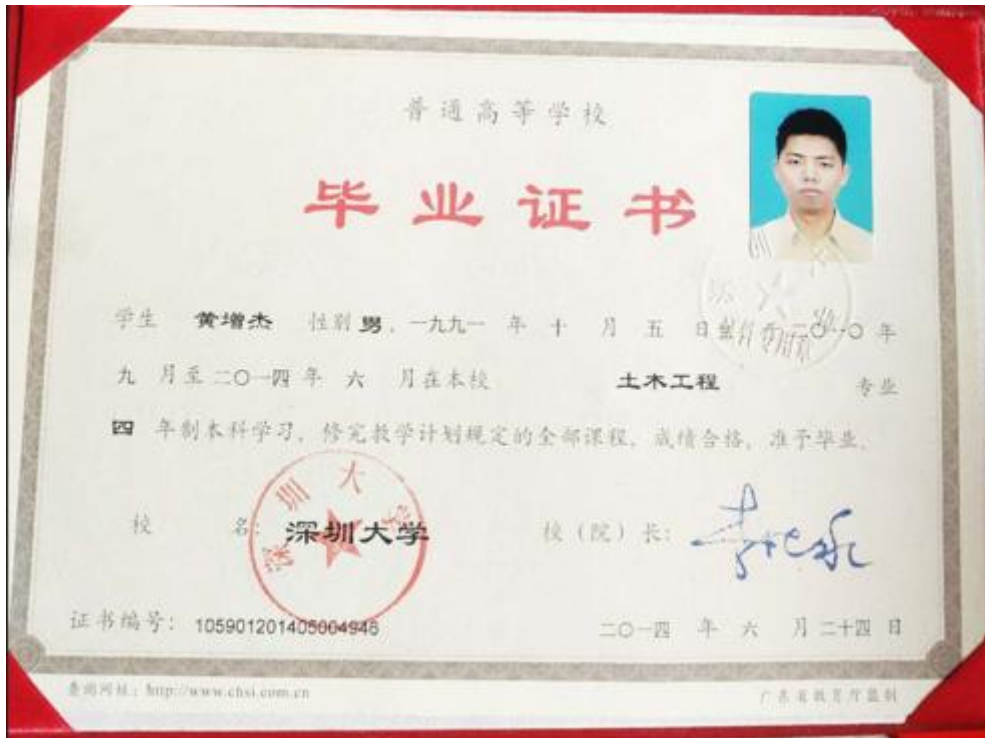 普通高等学校
毕业证书
学生 黄增杰 性别 男，一九九一 年 十 月 五 日生，于 二〇一〇 年
九 月至 二〇一四 年 六 月在本校 土木工程 专业
四 年制本科学习，修完教学计划规定的全部课程，成绩合格，准予毕业。
校 名：深圳大学 校（院）长：
深圳大学
证书编号：105901201405004946 二〇一四 年 六 月 二十四 日
查询网址：http://www.chsi.com.cn 广东省教育厅监制